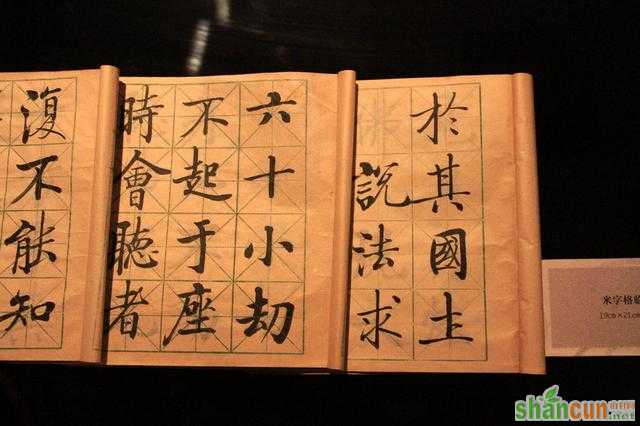 於其國土
說法求
六十小劫
不起于座
時會聽者
復不能知
米字格
19cm×21cm
shancun